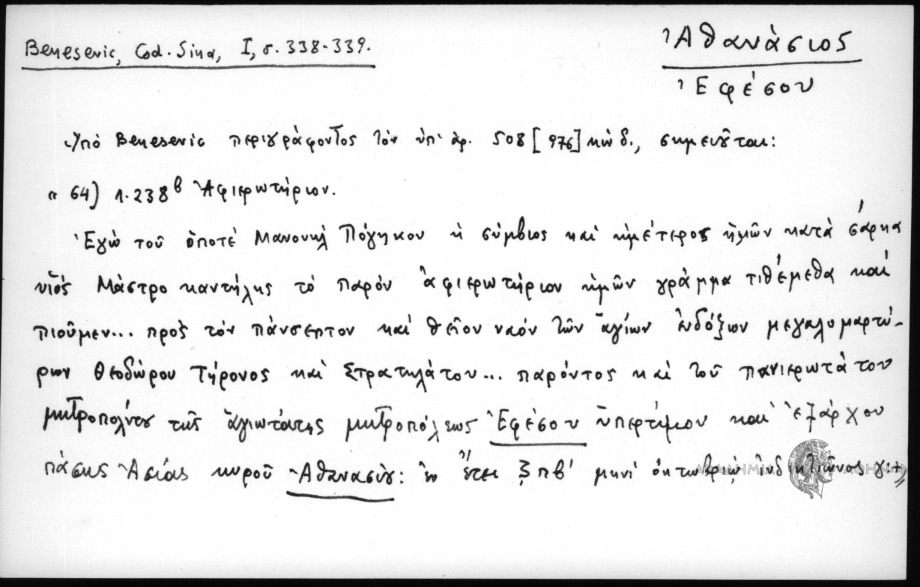 Beneševic, Cod. Sina, I, σ. 338-339.
Ἀθανάσιος
Ἐφέσου
Ὑπὸ Beneševic περιγράφοντος τὸν ὑπ' ἀρ. 508 [976] κώδ., σημειοῦται:
« 64) λ. 238β Ἀφιερωτήριον.
Ἐγὼ τοῦ ὁποτὲ Μανουὴλ Πόγηκου ἡ σύμβιος καὶ ἡμέτερος ἡμῶν κατὰ σάρκα
υἱός Μάστρο καντήλης τὸ παρόν ἀφιερωτήριον ἡμῶν γράμμα τιθέμεθα καὶ
πιοῦμεν... πρὸς τὸν πάνσεπτον καὶ θεῖον ναόν τῶν ἁγίων ἐνδόξων μεγαλομαρτύ-
ρων Θεοδώρου Τήρονος καὶ Στρατηλάτου... παρόντος καὶ τοῦ πανιερωτάτου
μητροπολίτου τῆς ἁγιωτάτης μητροπόλεως Ἐφέσου ὑπερτίμου καὶ ἐξάρχου
πάσης Ἀσίας κυροῦ Ἀθανασίου: ἐν ἔτει ξπβ' μηνὶ ὀκτωβρίῳ ἰνδικτιῶνος γ'+»